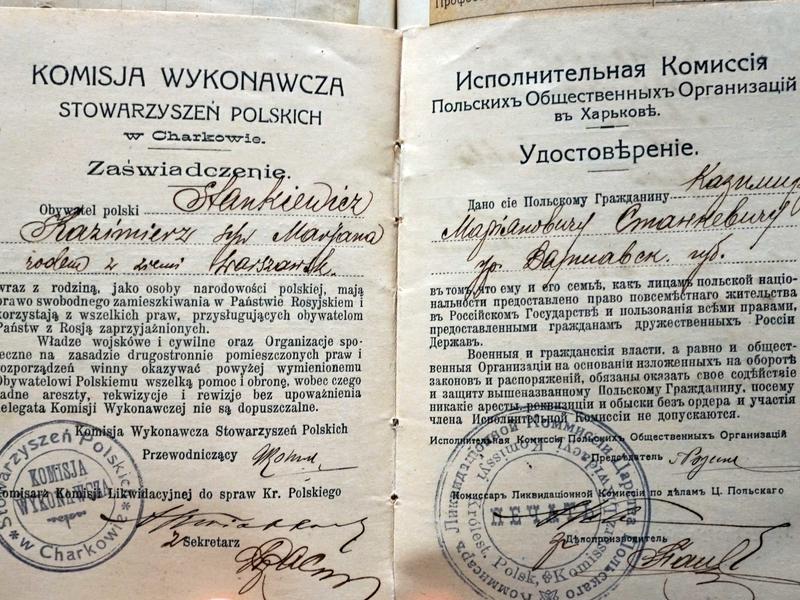 KOMISJA WYKONAWCZA
STOWARZYSZEŃ POLSKICH
w Charkowie.
Zaświadczenie.
Obywatel polski Stankiewicz
Kazimierz syn Marjana
rodem z ziemi Warszawsk.
wraz z rodziną, jako osoby narodowości polskiej, mają
prawo swobodnego zamieszkiwania w Państwie Rosyjskiem i
korzystają z wszelkich praw, przysługujących obywatelom
Państw z Rosją zaprzyjaźnionych.
Władze wojskowe i cywilne oraz Organizacje spo-
łeczne na zasadzie drugostronnie pomieszczonych praw i
rozporządzeń winny okazywać powyżej wymienionemu
Obywatelowi Polskiemu wszelką pomoc i obronę, wobec czego
żadne areszty, rekwizycje i rewizje bez upoważnienia
delegata Komisji Wykonawczej nie są dopuszczalne.
Komisja Wykonawcza Stowarzyszeń Polskich
Przewodniczący
Komisarz Komisji Likwidacyjnej do spraw Kr. Polskiego
Sekretarz
Stowarzyszeń Polskich
w Charkowie
KOMISJA
WYKONAWCZA
Исполнительная Комиссія
Польскихъ Общественныхъ Организацій
въ Харьковѣ.
Удостовѣреніе.
Дано сіе Польскому Гражданину Казимир
Маріановичу Станкевичу
ур. Варшавск. губ.
въ томъ, что ему и его семьѣ, какъ лицамъ польской націо-
нальности предоставлено право повсемѣстнаго жительства
въ Россійскомъ Государствѣ и пользованія всѣми правами,
предоставленными гражданамъ дружественныхъ Россіи
Державъ.
Военныя и гражданскія власти, а равно и общест-
венныя Организаціи на основаніи изложенныхъ на оборотѣ
законовъ и распоряженій, обязаны оказать свое содѣйствіе
и защиту вышеназванному Польскому Гражданину, посему
никакіе аресты, реквизиціи и обыски безъ ордера и участія
члена Исполнительной Комиссіи не допускаются.
Исполнительная Комиссія Польскихъ Общественныхъ Организацій
Предсѣдатель
Комиссаръ Ликвидаціонной Комиссіи по дѣламъ Ц. Польскаго
Дѣлопроизводитель
Комиссаръ Ликвидаціонной Коммисіи Царства Польскаго
ПЕЧАТЬ